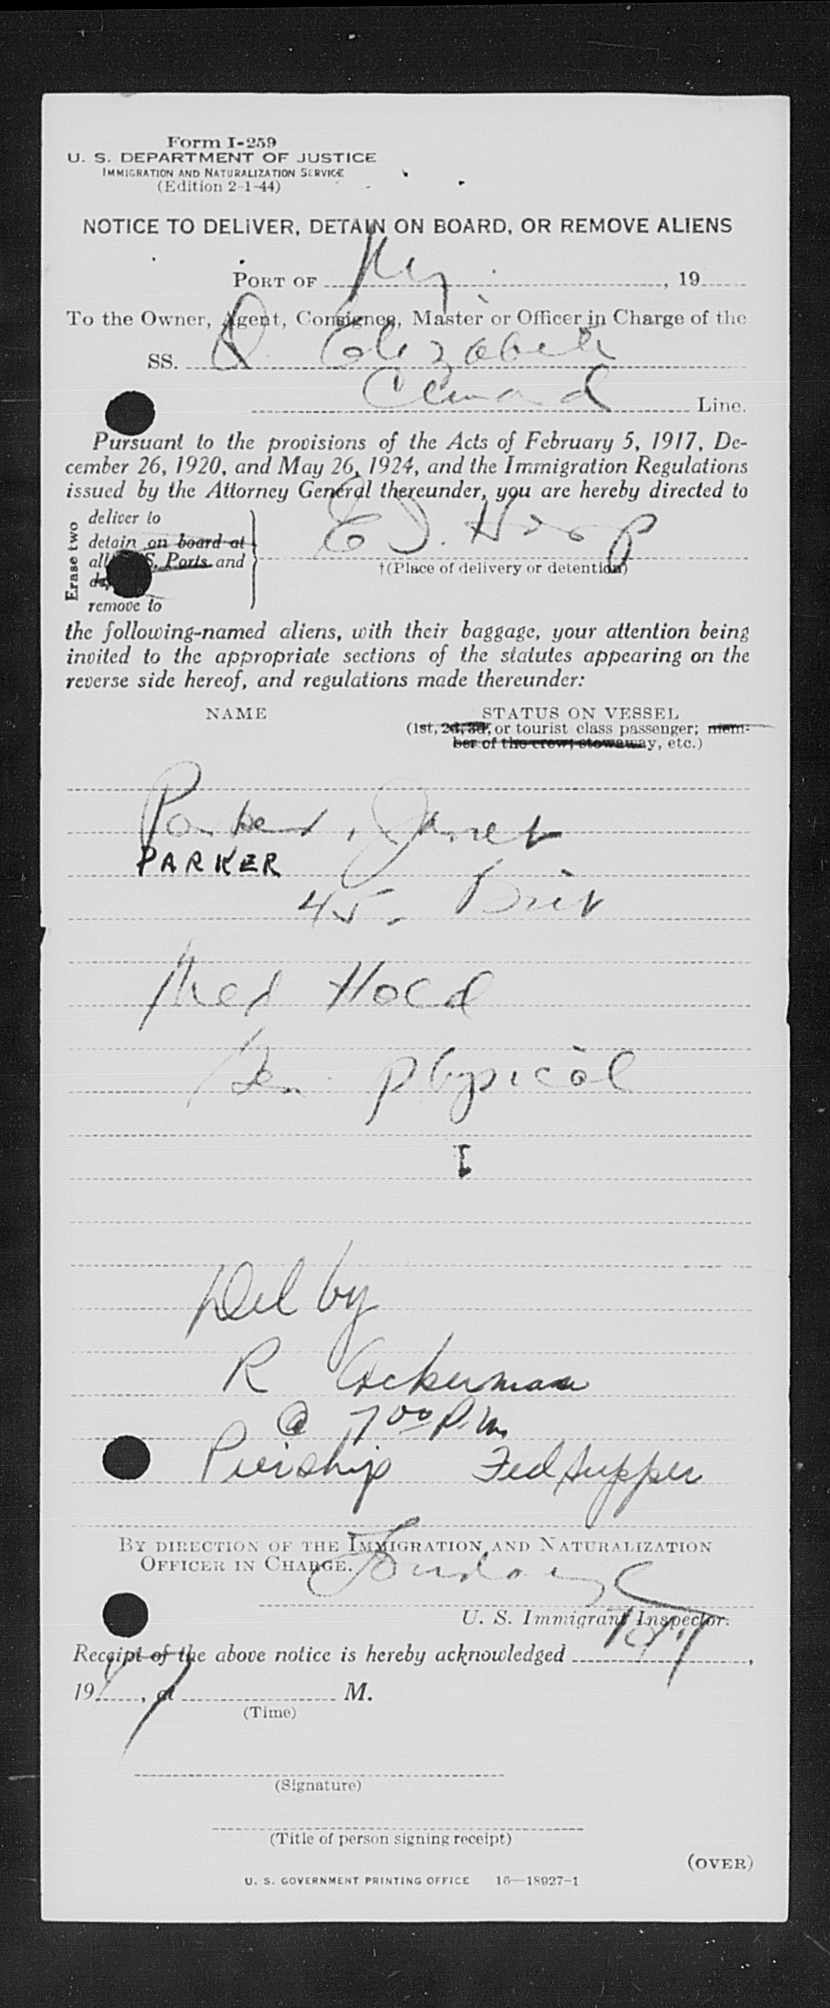 Form I-259
U. S. DEPARTMENT OF JUSTICE
IMMIGRATION AND NATURALIZATION SERVICE
(Edition 2-1-44)
NOTICE TO DELIVER, DETAIN ON BOARD, OR REMOVE ALIENS
PORT OF Ny , 19
To the Owner, Agent, Consignee, Master or Officer in Charge of the
SS. Q. Elizabeth
Cunard Line.
Pursuant to the provisions of the Acts of February 5, 1917, De-
cember 26, 1920, and May 26, 1924, and the Immigration Regulations
issued by the Attorney General thereunder, you are hereby directed to
Erase two
deliver to
detain on board at
all S. Ports and
remove to
E I. Hosp
†(Place of delivery or detention)
the following-named aliens, with their baggage, your attention being
invited to the appropriate sections of the statutes appearing on the
reverse side hereof, and regulations made thereunder:
NAME STATUS ON VESSEL
(1st, 2d, 3d, or tourist class passenger; mem-
ber of the crew; stowaway, etc.)
Parker, Janet
PARKER
45. Brit
Med Hold
physical
Del by
R Ackerman
@ 7 00 P.M.
Pier ship Fed supper
BY DIRECTION OF THE IMMIGRATION AND NATURALIZATION
OFFICER IN CHARGE.
U. S. Immigrant Inspector.
Receipt of the above notice is hereby acknowledged ,
19 , at M.
(Time)
(Signature)
(Title of person signing receipt)
(OVER)
U. S. GOVERNMENT PRINTING OFFICE 16—18927-1